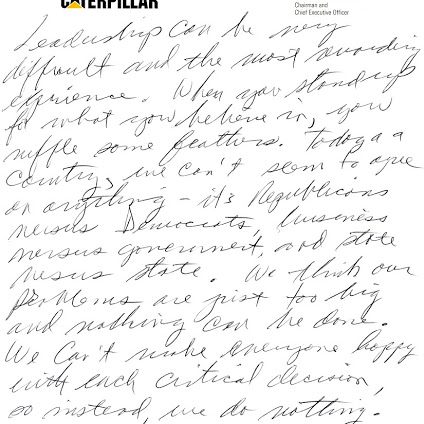 CATERPILLAR
Chairman and
Chief Executive Officer
Leadership can be very
difficult and the most rewarding
experience. When you stand up
for what you believe in, you
ruffle some feathers. Today a a
country, we can't seem to agree
on anything - it's Republicans
versus Democrats, business
versus government, and state
versus state. We think our
problems are just too big
and nothing can be done.
We can't make everyone happy
with each critical decision,
so instead, we do nothing.